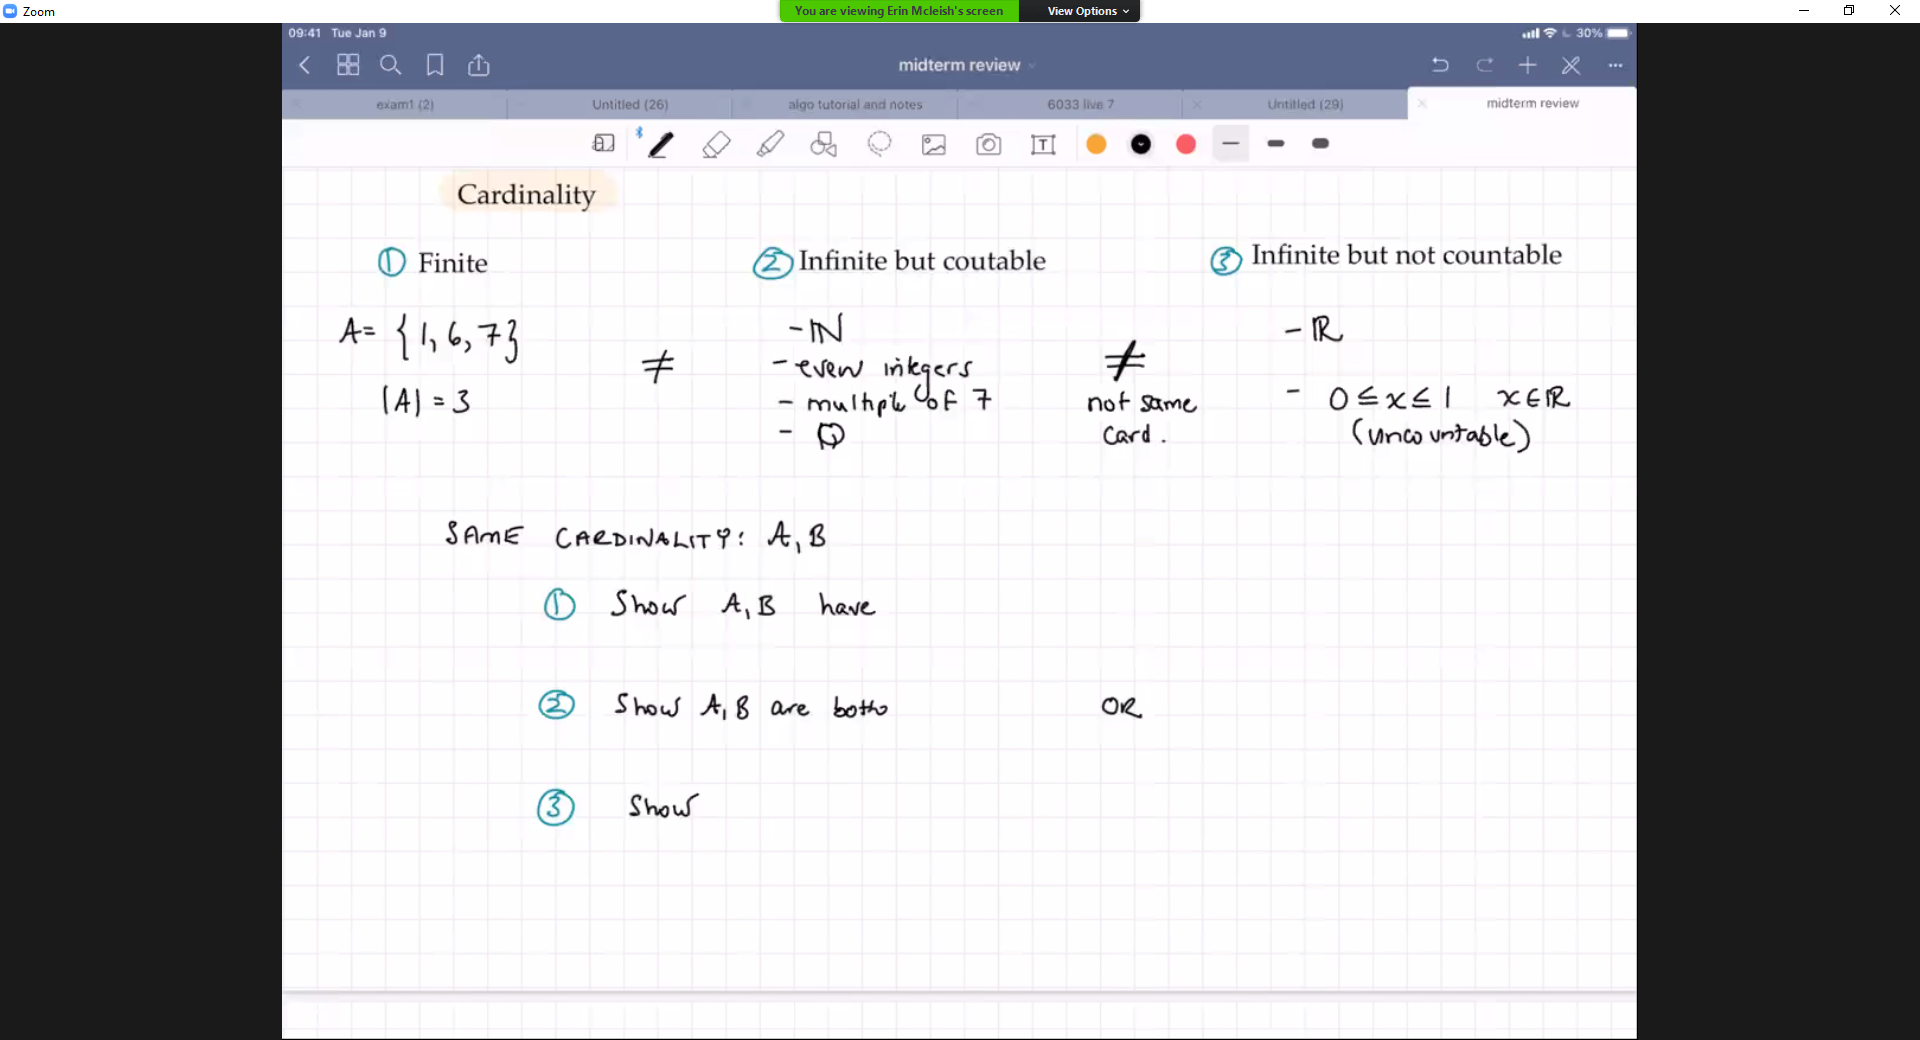 Zoom
You are viewing Erin Mcleish's screen View Options
09:41 Tue Jan 9
30%
midterm review
exam1 (2) Untitled (26) algo tutorial and notes 6033 live 7 Untitled (29) midterm review
Cardinality
① Finite
② Infinite but coutable
③ Infinite but not countable
A = {1, 6, 7}
|A| = 3
≠
- ℕ
- even integers
- multiple of 7
- ℚ
≠
not same
card.
- ℝ
- 0 ≤ x ≤ 1 x ∈ ℝ
(uncountable)
SAME CARDINALITY: A, B
① Show A, B have
② Show A, B are both OR
③ Show